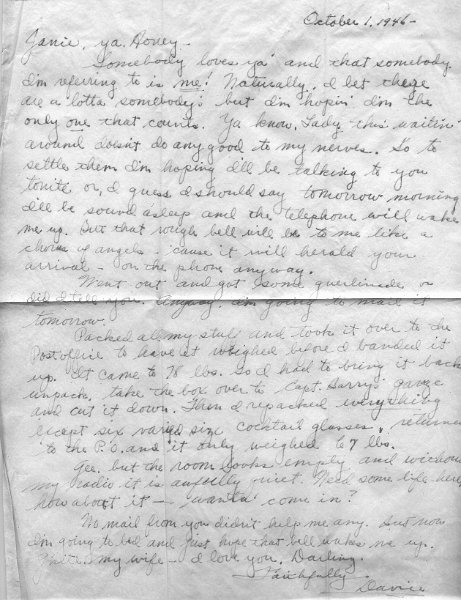 October 1, 1946-
Janie, ya Honey-
Somebody loves ya' and that somebody
I'm referring to is me! Naturally, I bet there
are a 'lotta' somebody's but I'm hopin' I'm the
only one that counts. Ya know, Lady- this waitin'
around doesn't do any good to my nerves. So to
settle them I'm hoping I'll be talking to you
tonite or, I guess I should say tomorrow morning
I'll be sound asleep and the telephone will wake
me up. But that rough bell will be to me like a
choir of angels- 'cause it will herald your
arrival- on the phone anyway.
Went out and got some or
did I tell you. Anyway, I'm going to mail it
tomorrow.
Packed all my stuff and took it over to the
Postoffice to have it weighed before I banded it
up. It came to 78 lbs. So I had to bring it back
unpack, take the box over to Capt. Garry's
and cut it down. Then I repacked everything
except six varied size cocktail glasses, returned
to the P.O. and it only weighed 67 lbs.
Gee, but the room looks empty and without
my radio it is awfully quiet. Need some life here,
how about it- wanta' come in?
No mail from you didn't help me any. But now
I'm going to bed and just hope that bell wakes me up.
Nite, my wife- I love you, Darling.
Faithfully-
Davie